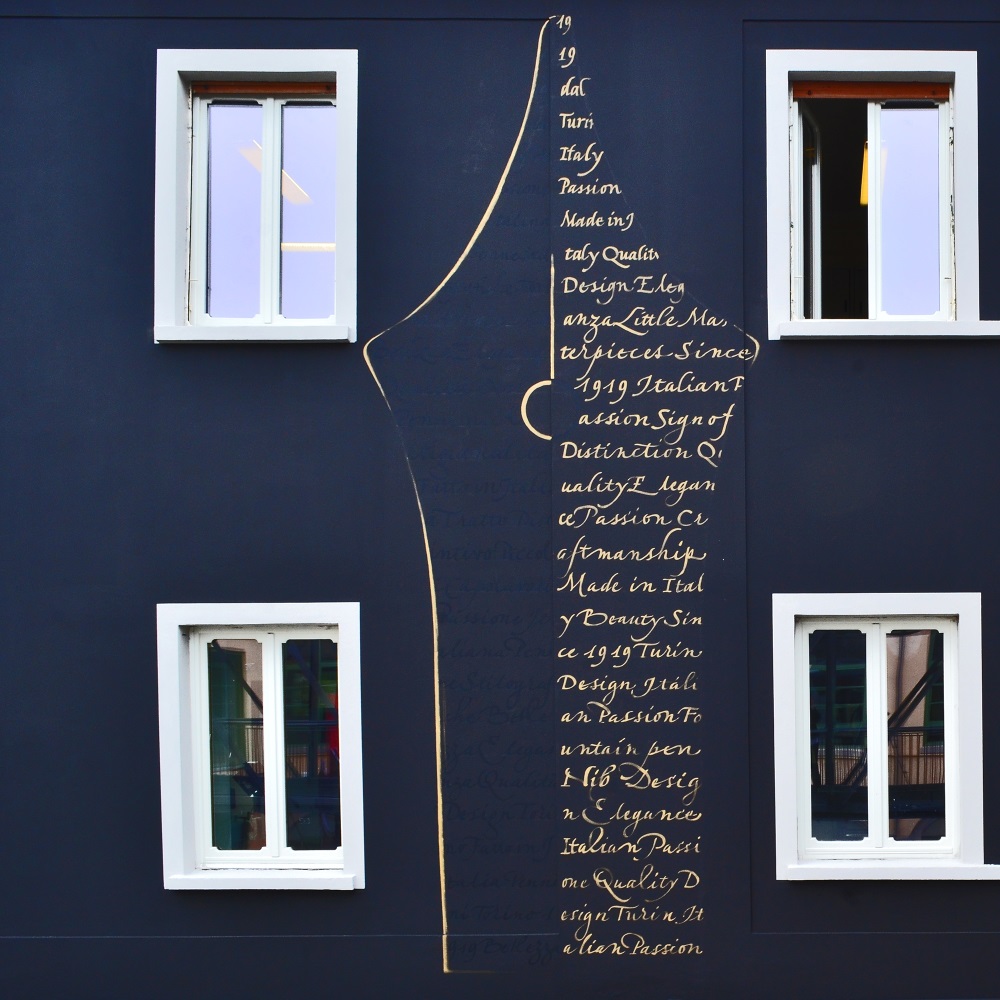 19
19
dal
Turi
Italy
Passion
Made in I
taly Quality
Design Eleg
anza Little Mas
terpieces Since
1919 Italian P
assion Sign of
Distinction Q
uality Elegan
ce Passion Cr
aftmanship
Made in Ital
y Beauty Sin
ce 1919 Turin
Design Itali
an Passion Fo
untain pen
Nib Desig
n Elegance
Italian Passi
one Quality D
esign Turin It
alian Passion